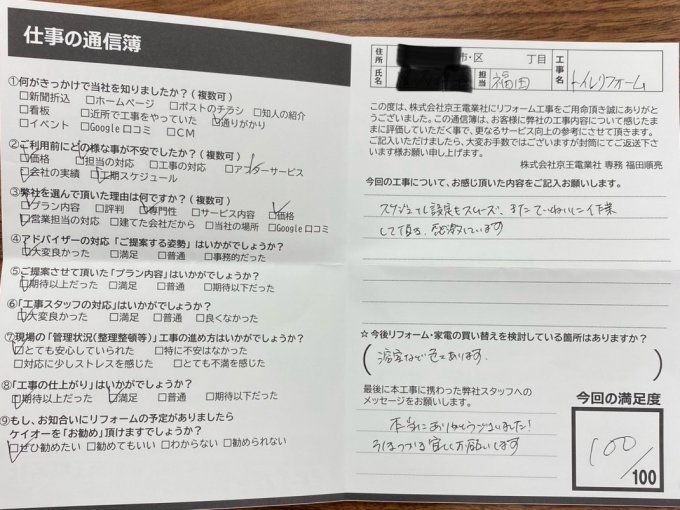 仕事の通信簿
①何がきっかけで当社を知りましたか？(複数可)
□新聞折込 □ホームページ □ポストのチラシ □知人の紹介
□看板 □近所で工事をやっていた □通りがかり
□イベント □Google口コミ □CM
②ご利用前にどの様な事が不安でしたか？(複数可)
□価格 □担当の対応 □工事の対応 □アフターサービス
□会社の実績 □工期スケジュール
③弊社を選んで頂いた理由は何ですか？(複数可)
□プラン内容 □評判 □専門性 □サービス内容 □価格
□営業担当の対応 □建てた会社だから □当社の場所 □Google口コミ
④アドバイザーの対応「ご提案する姿勢」はいかがでしょうか？
□大変良かった □満足 □普通 □事務的だった
⑤ご提案させて頂いた「プラン内容」はいかがでしょうか？
□期待以上だった □満足 □普通 □期待以下だった
⑥「工事スタッフの対応」はいかがでしょうか？
□大変良かった □満足 □普通 □良くなかった
⑦現場の「管理状況(整理整頓等)」工事の進め方はいかがでしょうか？
□とても安心していられた □特に不安はなかった
□対応に少しストレスを感じた □とても不満を感じた
⑧「工事の仕上がり」はいかがでしょうか？
□期待以上だった □満足 □普通 □期待以下だった
⑨もし、お知合いにリフォームの予定がありましたら
ケイオーを「お勧め」頂けますでしょうか？
□ぜひ勧めたい □勧めてもいい □わからない □勧められない
住所 市・区 丁目
氏名 担当 福田
工事名 トイレリフォーム
この度は、株式会社京王電業社にリフォーム工事をご用命頂き誠にありがと
うございました。この通信簿は、お客様に弊社の工事内容について感じたま
まに評価していただく事で、更なるサービス向上の参考にさせて頂きます。
ご記入いただけましたら、大変お手数ではございますが封筒にてご返送下さ
います様お願い申し上げます。
株式会社京王電業社 専務 福田順亮
今回の工事について、お感じ頂いた内容をご記入お願いします。
スケジュール設定もスムーズ、またていねいに作業
して頂き、感激しています
☆今後リフォーム・家電の買い替えを検討している箇所はありますか？
(浴室など色々あります。)
最後に本工事に携わった弊社スタッフへの
メッセージをお願いします。
本当にありがとうございました！
お願いします
今回の満足度
100/100